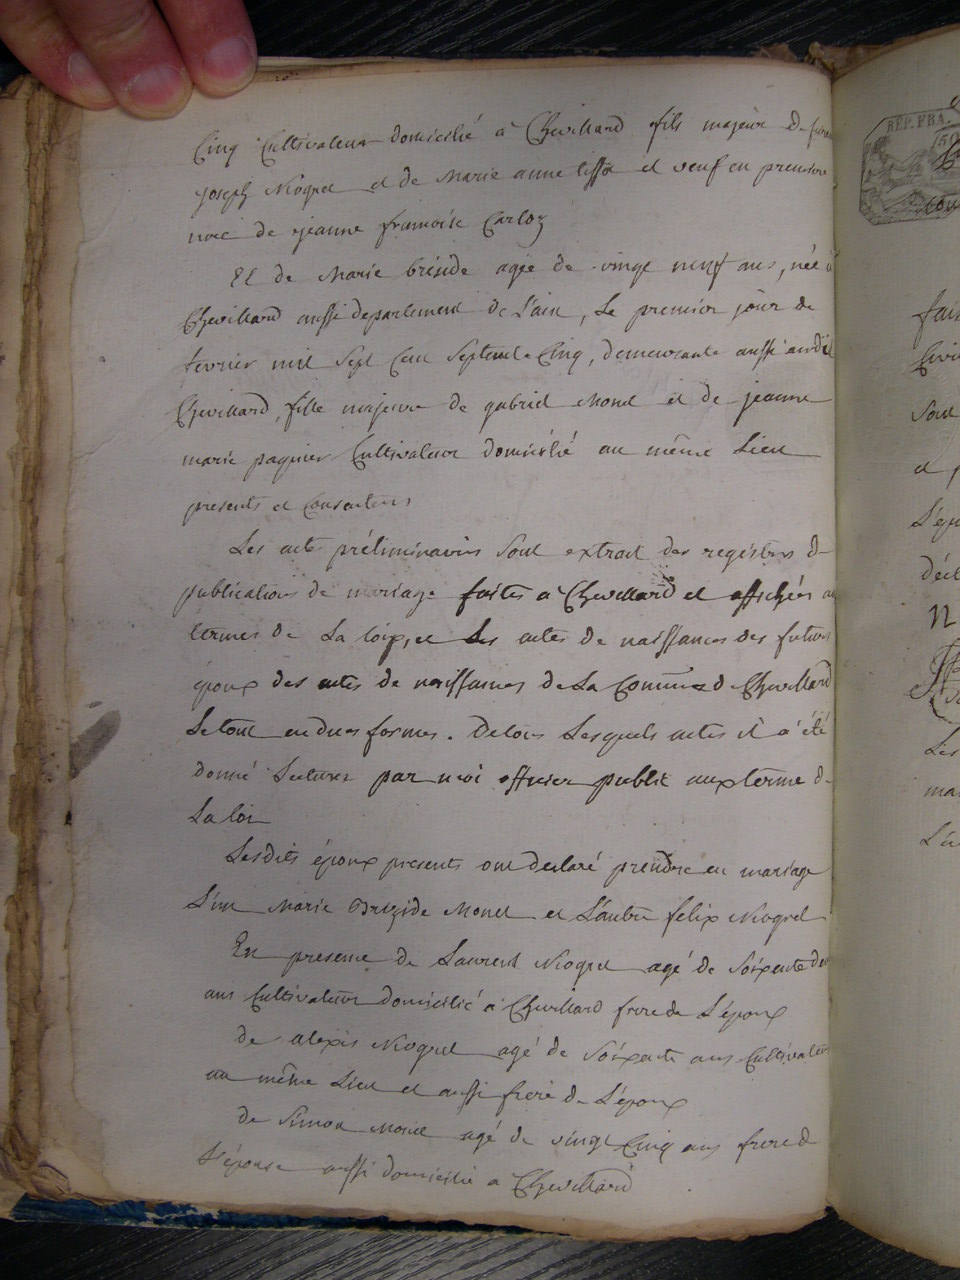 Cinq Cultivateur domicilié a Chevillard fils majeur de feu
joseph Niogret et de Marie anne et veuf en premiere
noce de jeanne francoise Carloz
Et de Marie bréside agée de vingt neuf ans, née a
Chevillard aussi departement de L'ain, Le premier jour de
fevrier mil Sept Cent Septente Cinq, demeurante aussi audit
Chevillard, fille majeure de gabriel Monet et de jeanne
marie paquier Cultivateur domicilié au même Lieu
presents et Consentens
Les acte préliminaires Sont extrait des registres de
publications de mariage faites a Chevillard et affichées au
termes de La loix, et Les actes de naissances des futurs
époux des actes de naissances de La Commune de Chevillard
Le tout en dues formes. De tous Lesquels actes il a été
donné Lecture par moi officier public aux terme de
La loi
Lesdits époux presents ont declaré prendre en mariage
L'un Marie Brezide Monet et L'autre felix Niogret
En presence de Laurent Niogret agé de Soixente deux
ans Cultivateur domicilié a Chevillard frere de L'époux
de alexis Niogret agé de Soixente ans Cultivateur
au même Lieu et aussi frere de L'époux
de Simon Monet agé de vingt Cinq ans frere de
L'épouse aussi domicilié a Chevillard
REP. FRA.